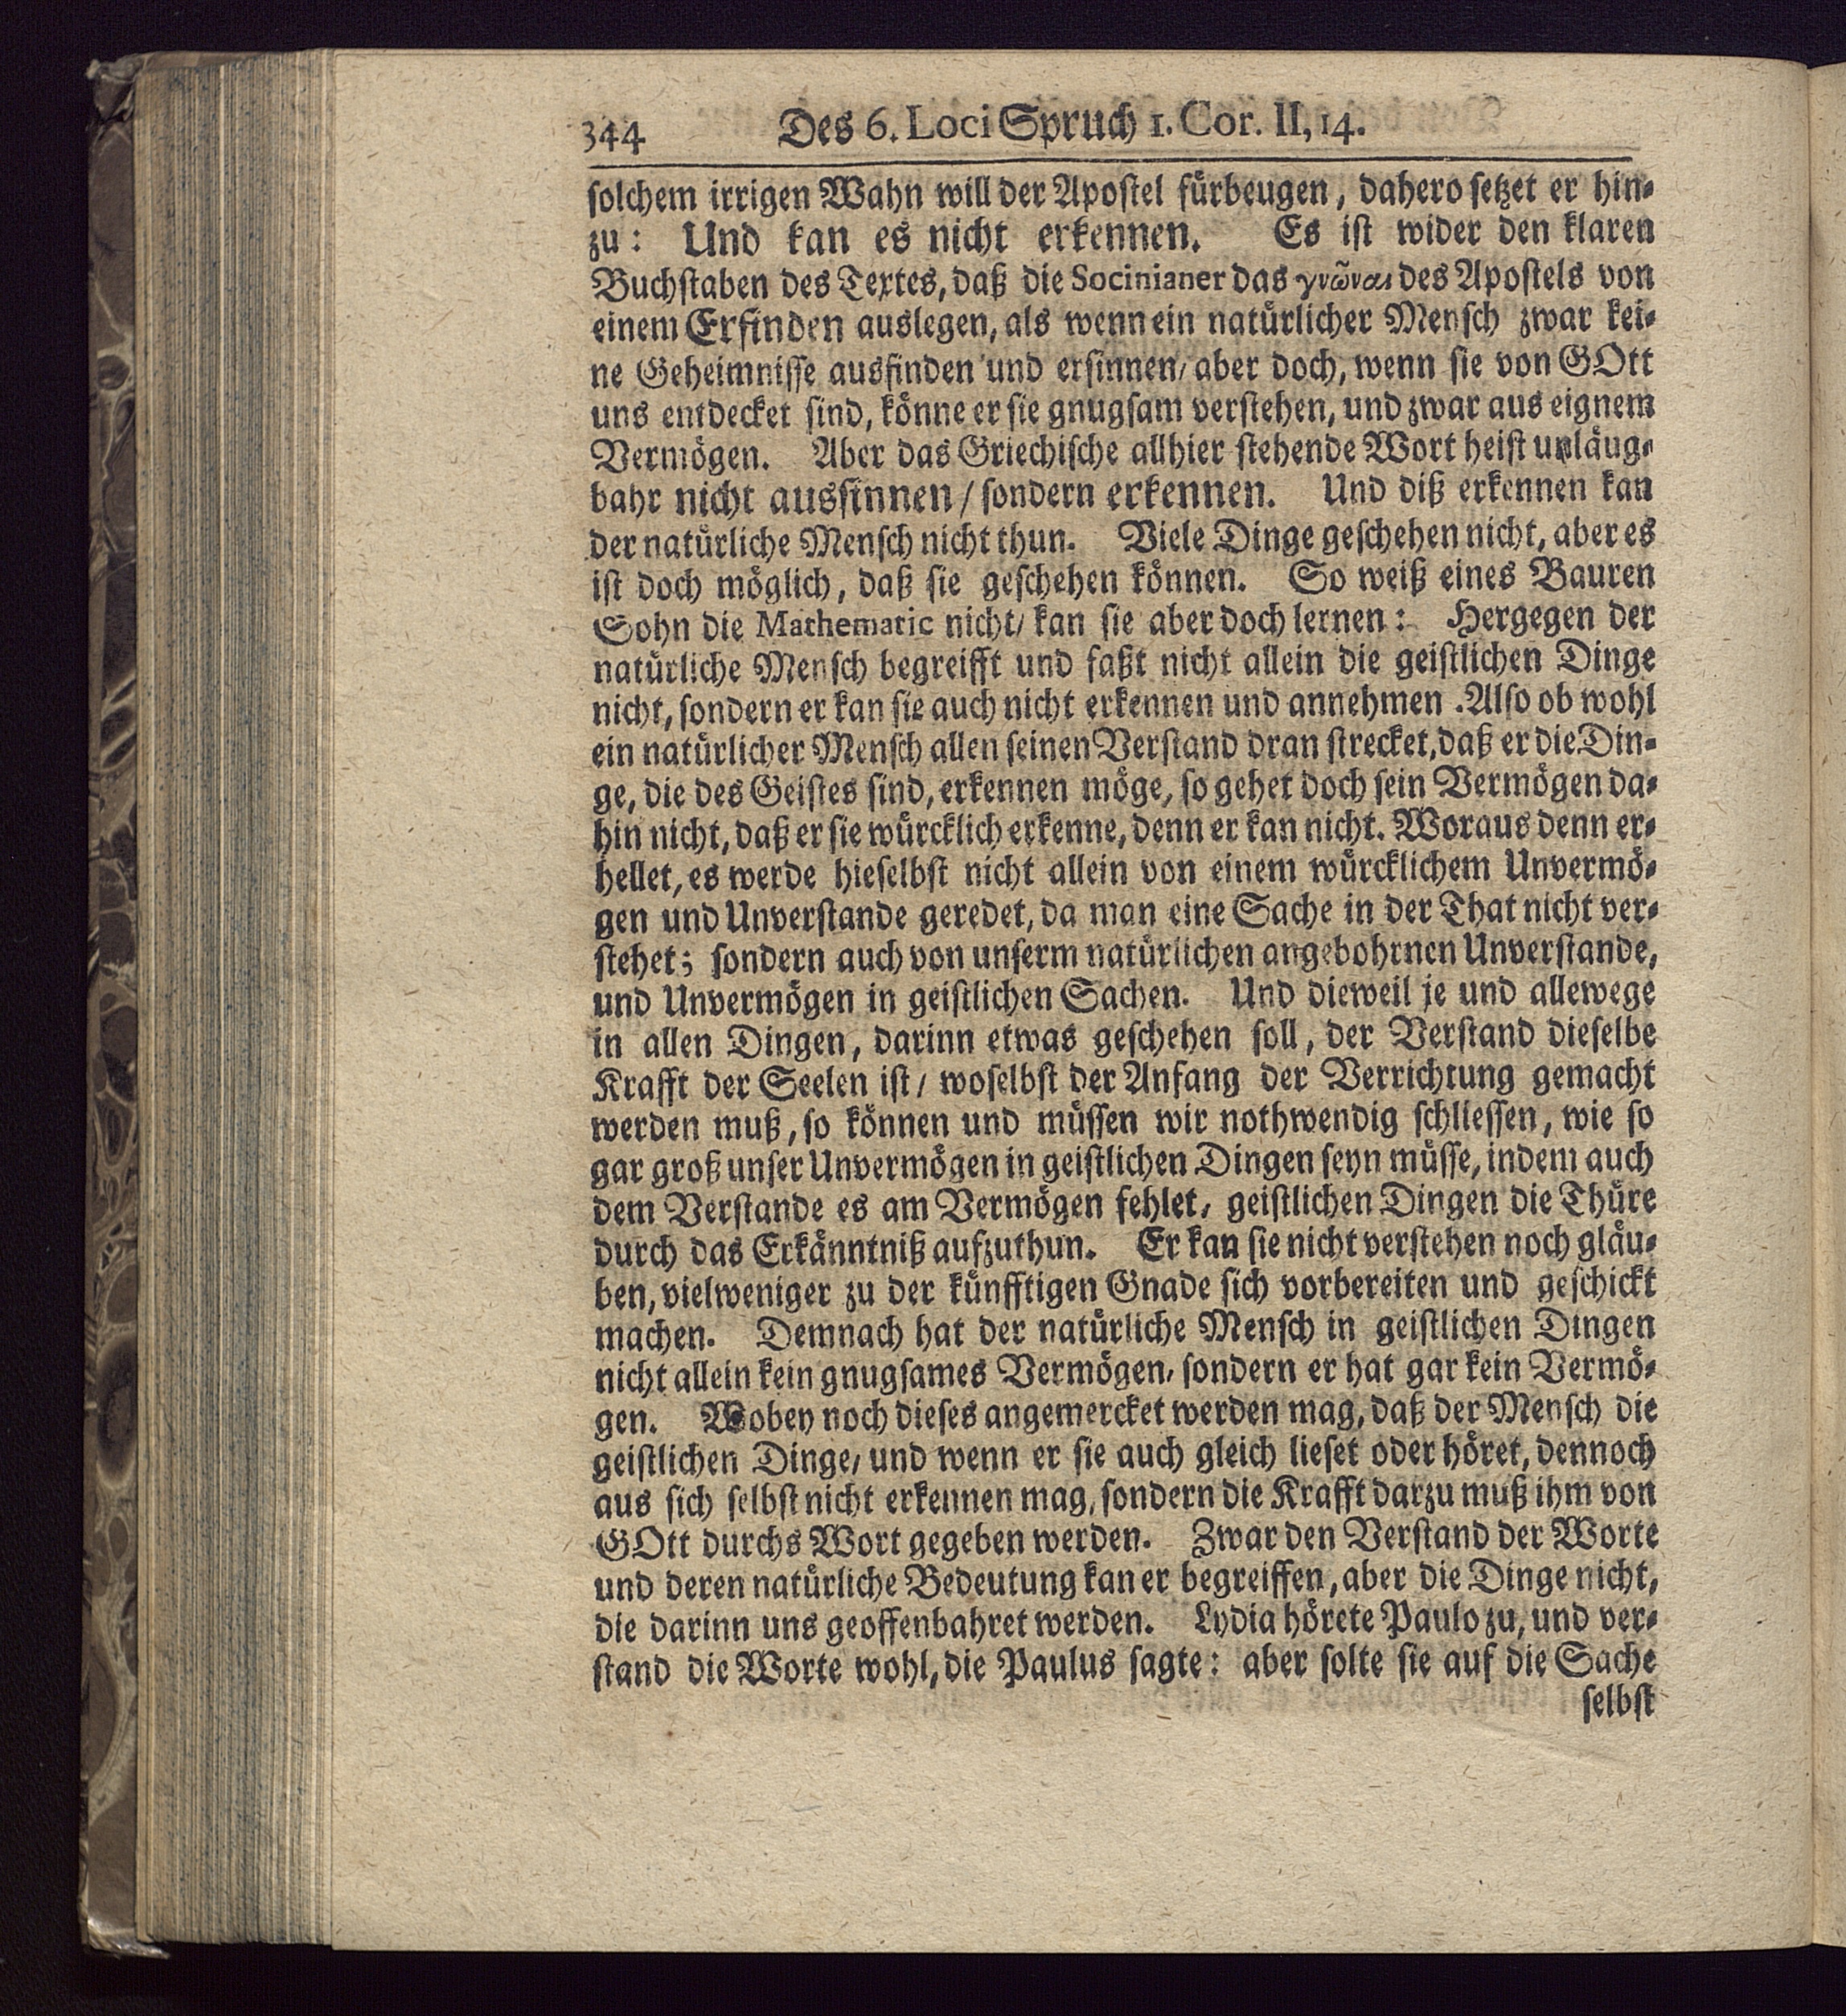 344 Des 6. Loci Spruch 1. Cor. II, 14.
solchem irrigen Wahn will der Apostel fürbeugen, dahero setzet er hin-
zu: Und kan es nicht erkennen. Es ist wider den klaren
Buchstaben des Textes, daß die Socinianer das γνῶναι des Apostels von
einem Erfinden auslegen, als wenn ein natürlicher Mensch zwar kei-
ne Geheimnisse ausfinden und ersinnen/ aber doch, wenn sie von GOtt
uns entdecket sind, könne er sie gnugsam verstehen, und zwar aus eignem
Vermögen. Aber das Griechische allhier stehende Wort heist unläug-
bahr nicht aussinnen / sondern erkennen. Und diß erkennen kan
der natürliche Mensch nicht thun. Viele Dinge geschehen nicht, aber es
ist doch möglich, daß sie geschehen können. So weiß eines Bauren
Sohn die Mathematic nicht/ kan sie aber doch lernen: Hergegen der
natürliche Mensch begreifft und faßt nicht allein die geistlichen Dinge
nicht, sondern er kan sie auch nicht erkennen und annehmen .Also ob wohl
ein natürlicher Mensch allen seinen Verstand dran strecket, daß er die Din-
ge, die des Geistes sind, erkennen möge, so gehet doch sein Vermögen da-
hin nicht, daß er sie würcklich erkenne, denn er kan nicht. Woraus denn er-
hellet, es werde hieselbst nicht allein von einem würcklichem Unvermö-
gen und Unverstande geredet, da man eine Sache in der That nicht ver-
stehet; sondern auch von unserm natürlichen angebohrnen Unverstande,
und Unvermögen in geistlichen Sachen. Und dieweil je und allewege
in allen Dingen, darinn etwas geschehen soll, der Verstand dieselbe
Krafft der Seelen ist/ woselbst der Anfang der Verrichtung gemacht
werden muß, so können und müssen wir nothwendig schliessen, wie so
gar groß unser Unvermögen in geistlichen Dingen seyn müsse, indem auch
dem Verstande es am Vermögen fehlet, geistlichen Dingen die Thüre
durch das Erkänntniß aufzuthun. Er kan sie nicht verstehen noch gläu-
ben, vielweniger zu der künfftigen Gnade sich vorbereiten und geschickt
machen. Demnach hat der natürliche Mensch in geistlichen Dingen
nicht allein kein gnugsames Vermögen, sondern er hat gar kein Vermö-
gen. Wobey noch dieses angemercket werden mag, daß der Mensch die
geistlichen Dinge/ und wenn er sie auch gleich lieset oder höret, dennoch
aus sich selbst nicht erkennen mag, sondern die Krafft darzu muß ihm von
GOtt durchs Wort gegeben werden. Zwar den Verstand der Worte
und deren natürliche Bedeutung kan er begreiffen, aber die Dinge nicht,
die darinn uns geoffenbahret werden. Lydia hörete Paulo zu, und ver-
stand die Worte wohl, die Paulus sagte: aber solte sie auf die Sache
selbst